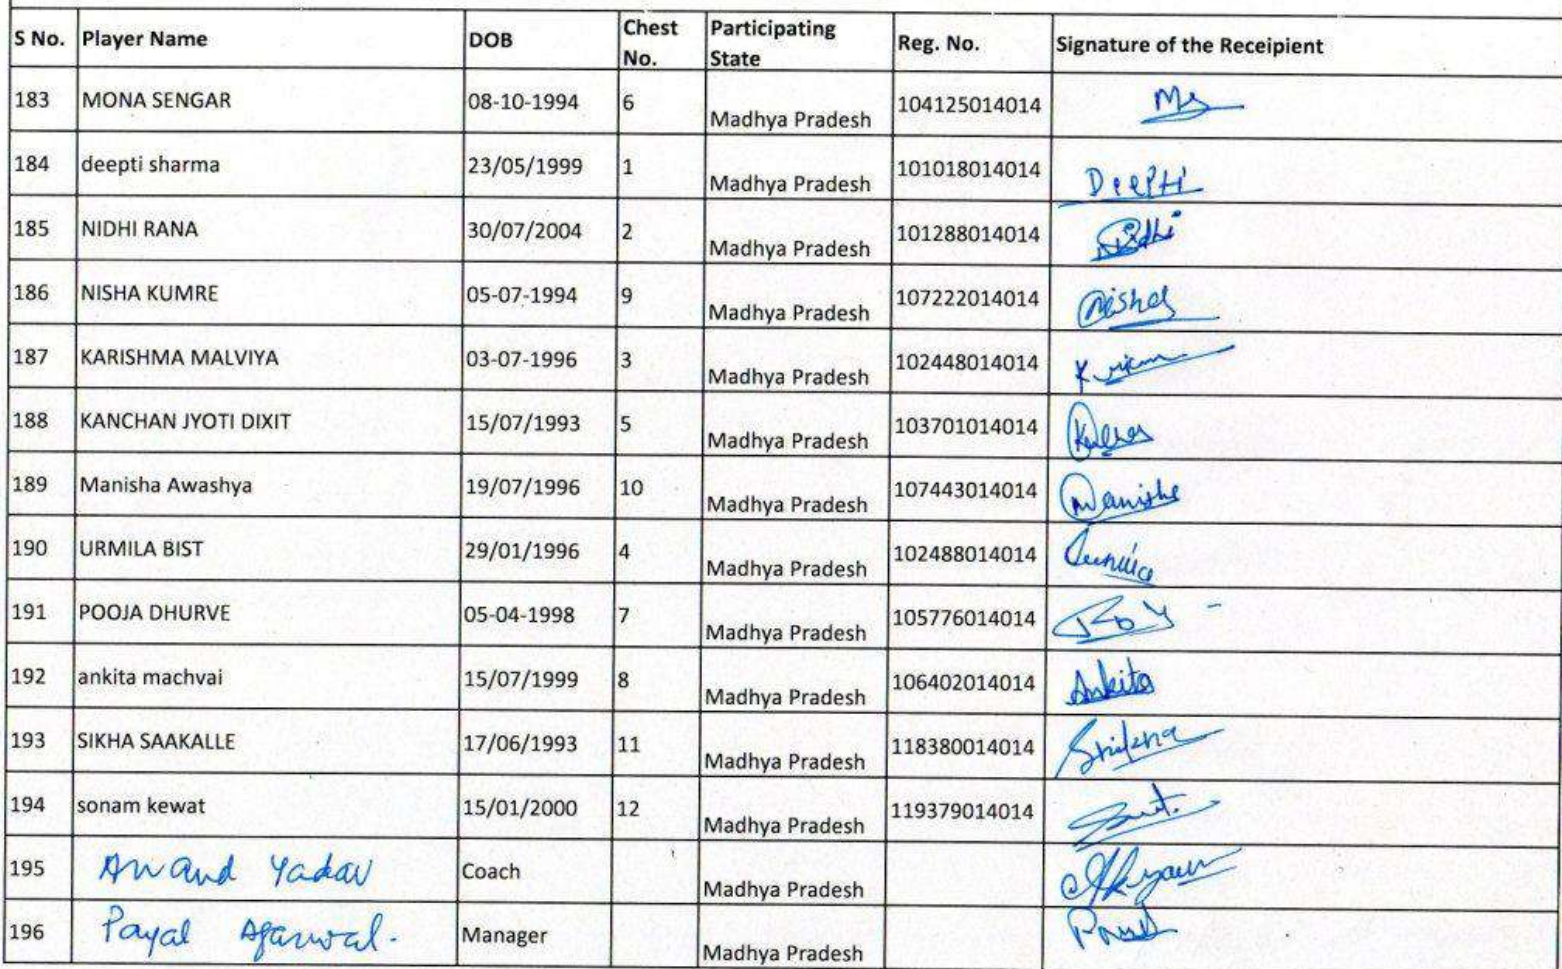 S No. Player Name DOB Chest No. Participating State Reg. No. Signature of the Receipient
183 MONA SENGAR 08-10-1994 6 Madhya Pradesh 104125014014
184 deepti sharma 23/05/1999 1 Madhya Pradesh 101018014014 Deepti
185 NIDHI RANA 30/07/2004 2 Madhya Pradesh 101288014014 Nidhi
186 NISHA KUMRE 05-07-1994 9 Madhya Pradesh 107222014014 Nisha
187 KARISHMA MALVIYA 03-07-1996 3 Madhya Pradesh 102448014014
188 KANCHAN JYOTI DIXIT 15/07/1993 5 Madhya Pradesh 103701014014
189 Manisha Awashya 19/07/1996 10 Madhya Pradesh 107443014014 Manisha
190 URMILA BIST 29/01/1996 4 Madhya Pradesh 102488014014
191 POOJA DHURVE 05-04-1998 7 Madhya Pradesh 105776014014
192 ankita machvai 15/07/1999 8 Madhya Pradesh 106402014014 Ankita
193 SIKHA SAAKALLE 17/06/1993 11 Madhya Pradesh 118380014014 Shikha
194 sonam kewat 15/01/2000 12 Madhya Pradesh 119379014014
195 Anand Yadav Coach Madhya Pradesh
196 Payal Agarwal. Manager Madhya Pradesh